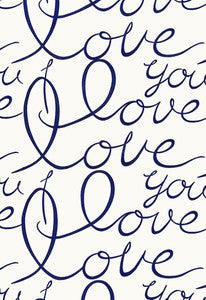 Love
you
I
Love
Love
you
I
Love
Love
you
I